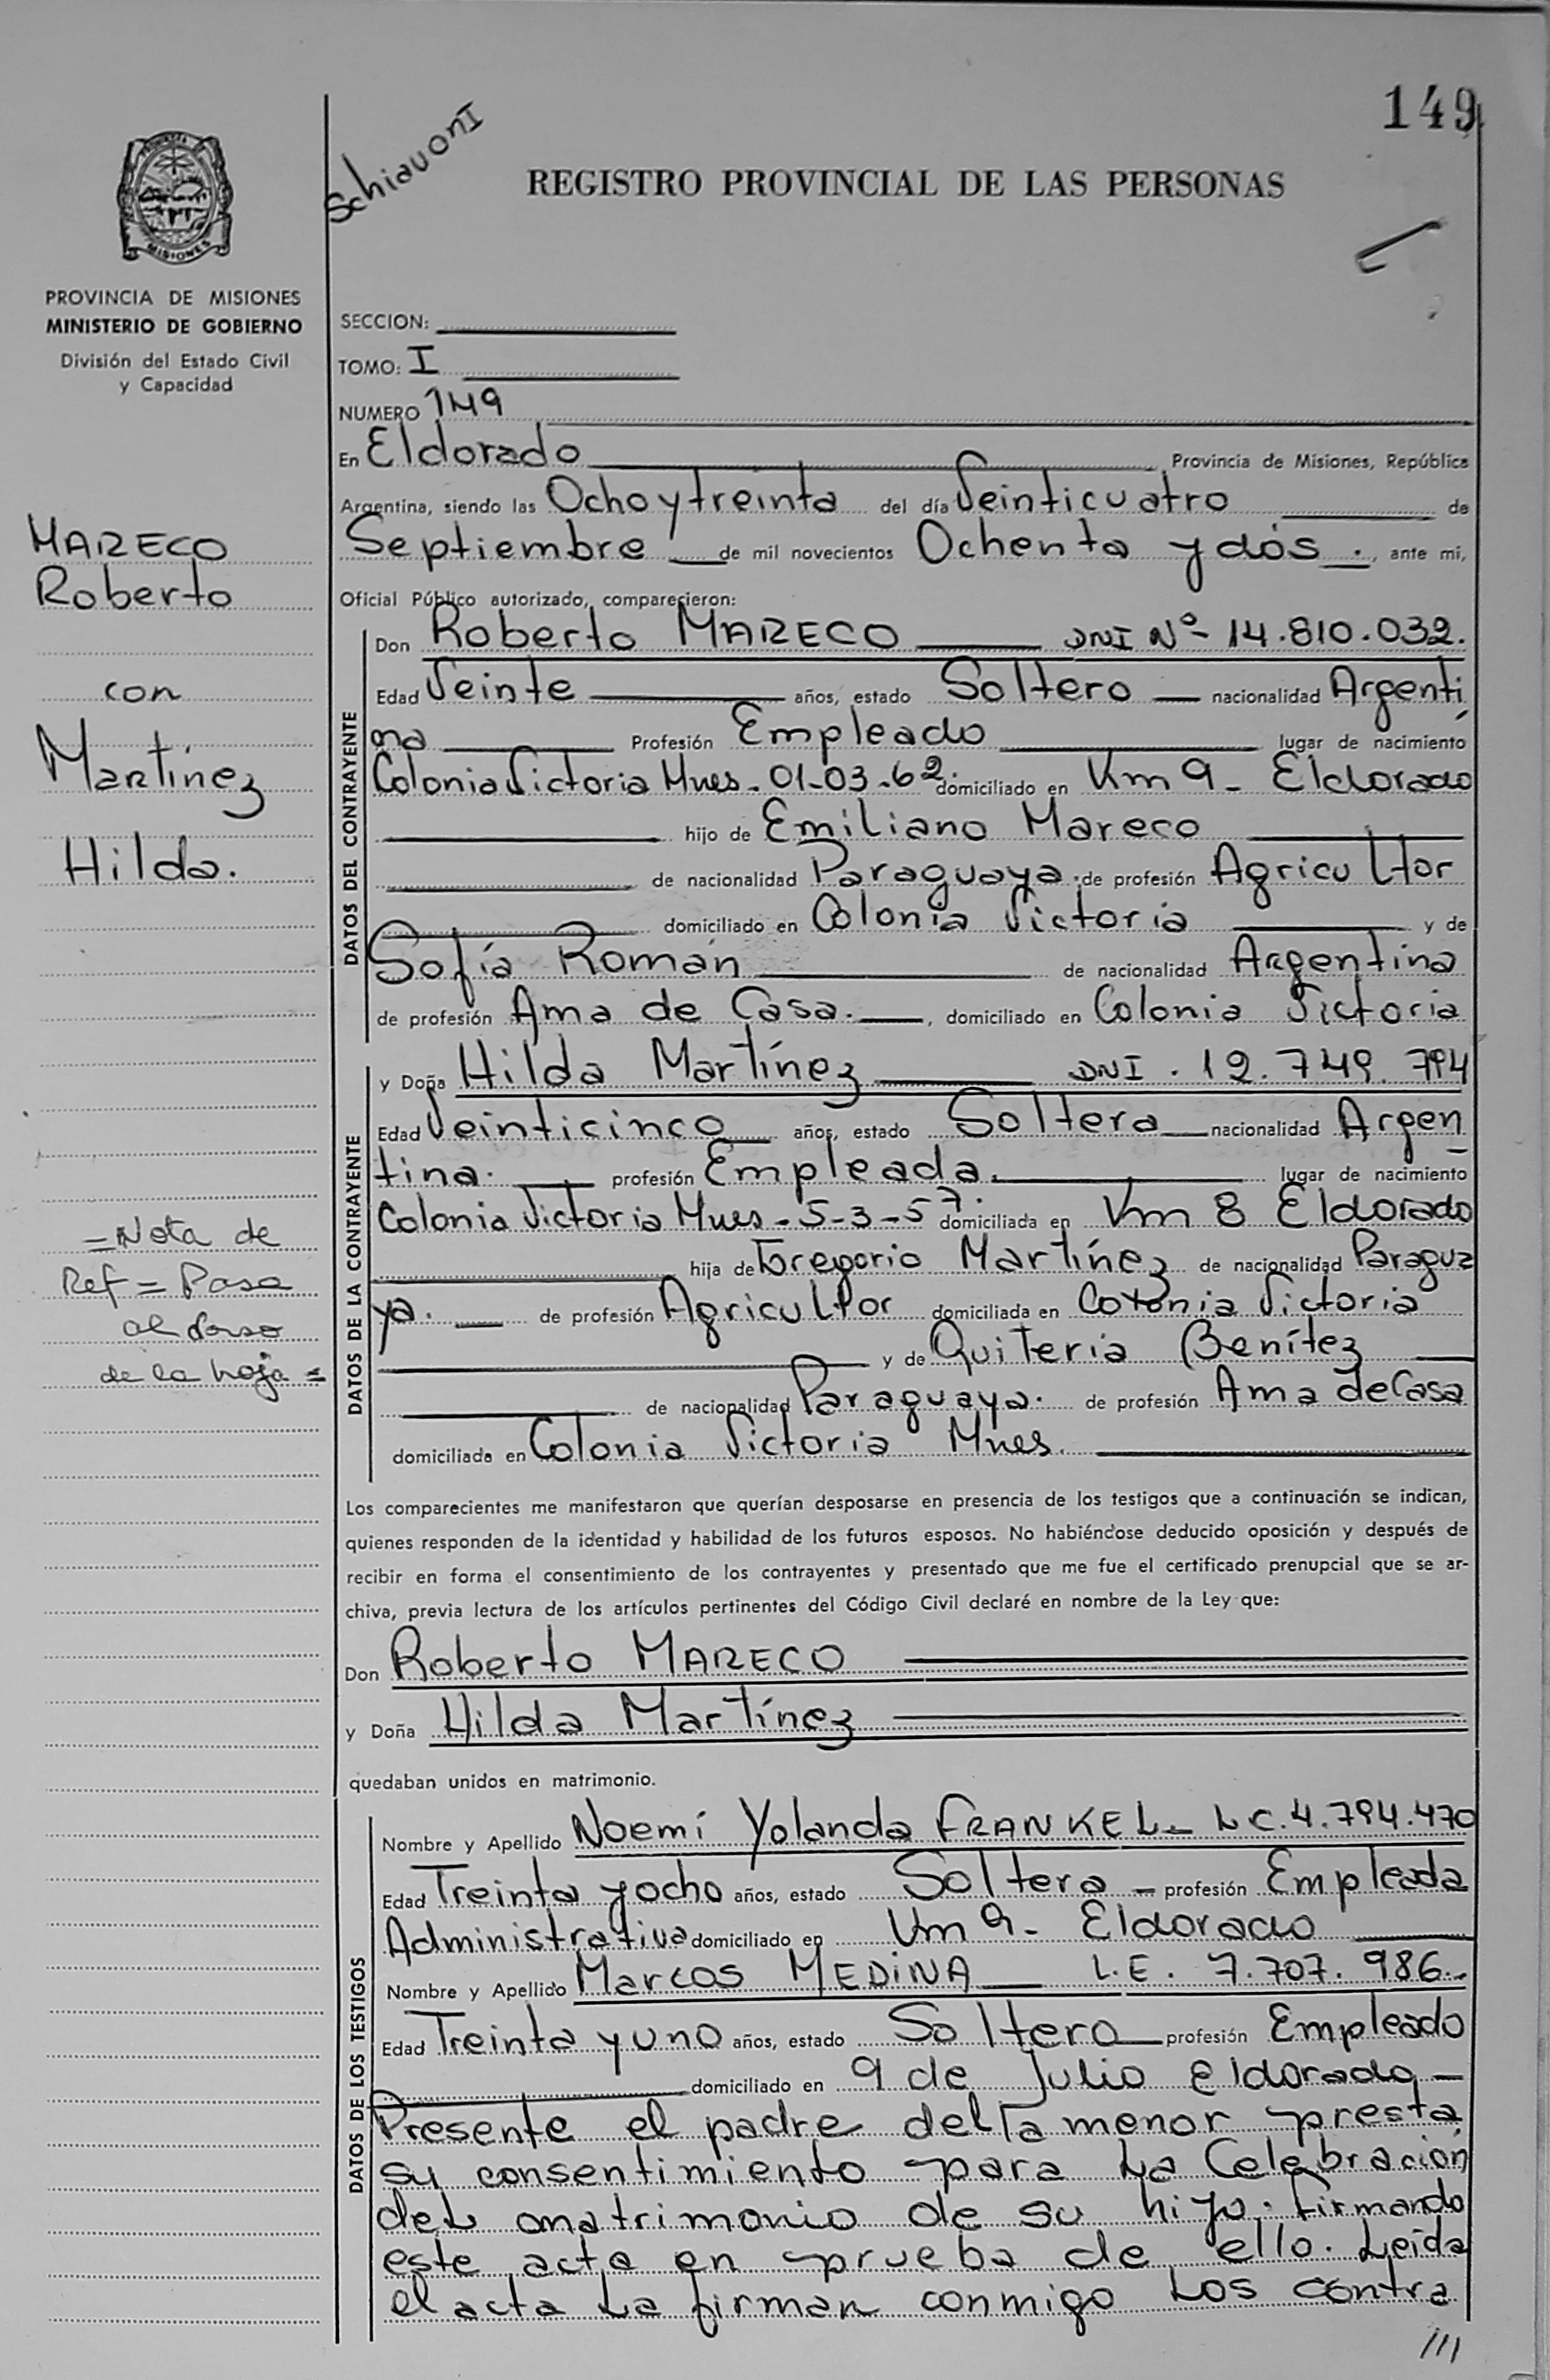 149
Schiavoni
REGISTRO PROVINCIAL DE LAS PERSONAS
MISIONES
PROVINCIA DE MISIONES
MINISTERIO DE GOBIERNO
División del Estado Civil
y Capacidad
SECCION:
TOMO: I
NUMERO 149
En Eldorado Provincia de Misiones, República
Argentina, siendo las Ocho y treinta del día Veinticuatro de
Septiembre de mil novecientos Ochenta y dós., ante mi,
Oficial Público autorizado, comparecieron:
MARECO
Roberto
con
Martínez
Hilda.
=Nota de
Ref = Pasa
al dorso
de la hoja =
DATOS DEL CONTRAYENTE
Don Roberto MARECO DNI Nº 14.810.032.
Edad Veinte años, estado Soltero nacionalidad Argenti
na Profesión Empleado lugar de nacimiento
Colonia Victoria Mnes. 01-03-62. domiciliado en Km 9 - Eldorado
hijo de Emiliano Mareco
de nacionalidad Paraguaya. de profesión Agricultor
domiciliado en Colonia Victoria y de
Sofía Román de nacionalidad Argentina
de profesión Ama de Casa. , domiciliado en Colonia Victoria
DATOS DE LA CONTRAYENTE
y Doña Hilda Martínez DNI. 12.749.794
Edad Veinticinco años, estado Soltera nacionalidad Argen
tina. profesión Empleada. lugar de nacimiento
Colonia Victoria Mnes - 5-3-57. domiciliada en Km 8 Eldorado
hija de Gregorio Martínez de nacionalidad Paragua
ya. de profesión Agricultor domiciliada en Colonia Victoria
y de Quiteria Benítez
de nacionalidad Paraguaya. de profesión Ama de Casa
domiciliada en Colonia Victoria Mnes.
Los comparecientes me manifestaron que querían desposarse en presencia de los testigos que a continuación se indican,
quienes responden de la identidad y habilidad de los futuros esposos. No habiéndose deducido oposición y después de
recibir en forma el consentimiento de los contrayentes y presentado que me fue el certificado prenupcial que se ar-
chiva, previa lectura de los artículos pertinentes del Código Civil declaré en nombre de la Ley que:
Don Roberto MARECO
y Doña Hilda Martínez
quedaban unidos en matrimonio.
DATOS DE LOS TESTIGOS
Nombre y Apellido Noemí Yolanda FRANKEL - LC. 4.794.470
Edad Treinta y ocho años, estado Soltera - profesión Empleada
Administrativa domiciliado en Km 9 - Eldorado
Nombre y Apellido Marcos MEDINA L.E. 7.707.986.
Edad Treinta y uno años, estado Soltero profesión Empleado
domiciliado en 9 de Julio Eldorado
Presente el padre del menor presta
su consentimiento para la Celebración
del matrimonio de su hijo. firmando
este acta en prueba de ello. Leida
el acta la firman conmigo los contra
///